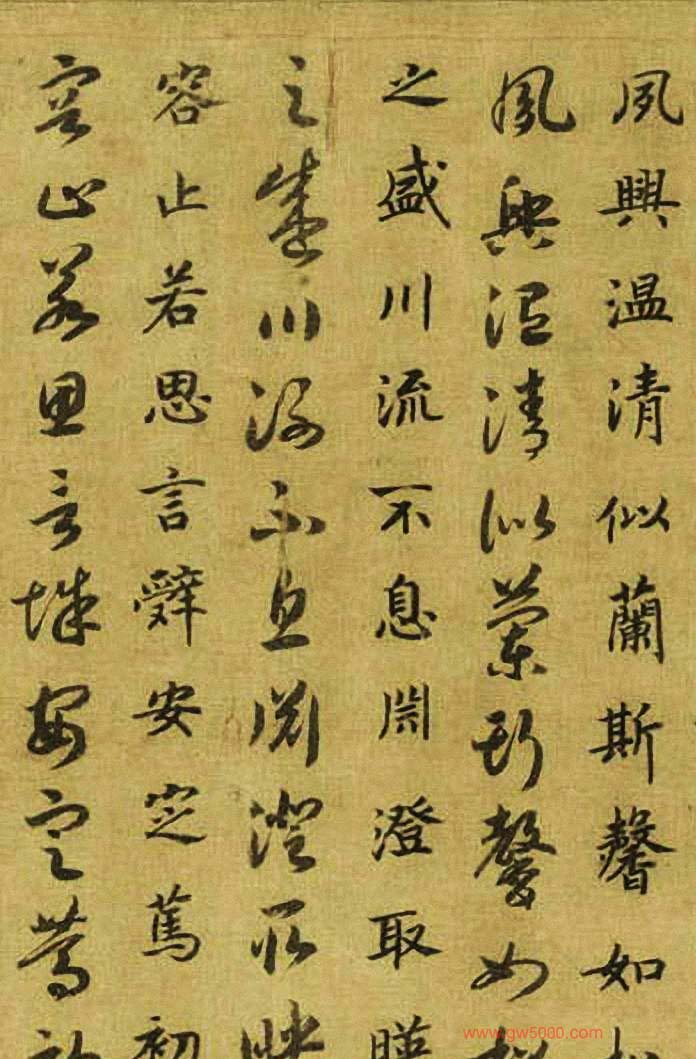 夙興温清似蘭斯馨如
夙興温清似蘭斯馨如
之盛川流不息淵澄取暎
之盛川流不息淵澄取映
容止若思言辤安定篤初
容止若思言辭安定篤初
www.gw5000.com